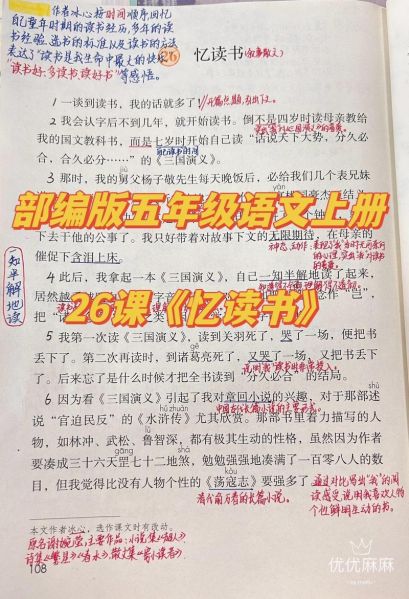 作者冰心按时间顺序回忆
自己童年时期的读书经历,多年的读
书经验、选书的标准以及读书的方法
表达了“读书是我生命中最大的快乐”
“读书好,多读书,读好书”等感悟。
26 忆读书(叙事散文)
1 一谈到读书,我的话就多了!
开篇点题,引出下文。
2 我自从会认字后不到几年,就开始读书。倒不是四岁时读母亲教给
我的国文教科书,而是七岁时开始自己读“话说天下大势,分久必
合,合久必分……”的《三国演义》。
3 那时,我的舅父杨子敬先生每天晚饭后,必给我们几个表兄妹
部编版五年级语文上册
下去干他的公事了。我只好带着对故事下文的无限期待,在母亲的
催促下含泪上床。
知半解地读
4 此后,我拿起一本《三国演义》,自己一知半解地读了起来,
居然越
26课《忆读书》
5 我第一次读《三国演义》,读到关羽死了,哭了一场,便把书
丢下了。第二次再读时,到诸葛亮死了,又哭了一场,又把书丢下
了。后来忘了是什么时候才把全书读到“分久必合”的结局。
6 因为看《三国演义》引起了我对章回小说的兴趣,对于那部述
中国古代长篇小说的主要形式。
说“官迫民反”的《水浒传》尤其欣赏。那部书里着力描写的人
物,如林冲、武松、鲁智深,都有极其生动的性格,虽然因为作者
要凑成三十六天罡七十二地煞,勉勉强强地凑满了一百零八人的数
目,但我觉得比没有人物个性的《荡寇志》要强多了。
通过对比写出“我”的阅
读感受,说明我喜欢人物
个性鲜明生动的书。
清代俞万春的长篇小说。
本文作者冰心,选作课文时有改动。
原名谢婉莹,主要作品:小说集《超人》
诗集《繁星》《春水》,散文集《寄小读者》
108
优优麻麻